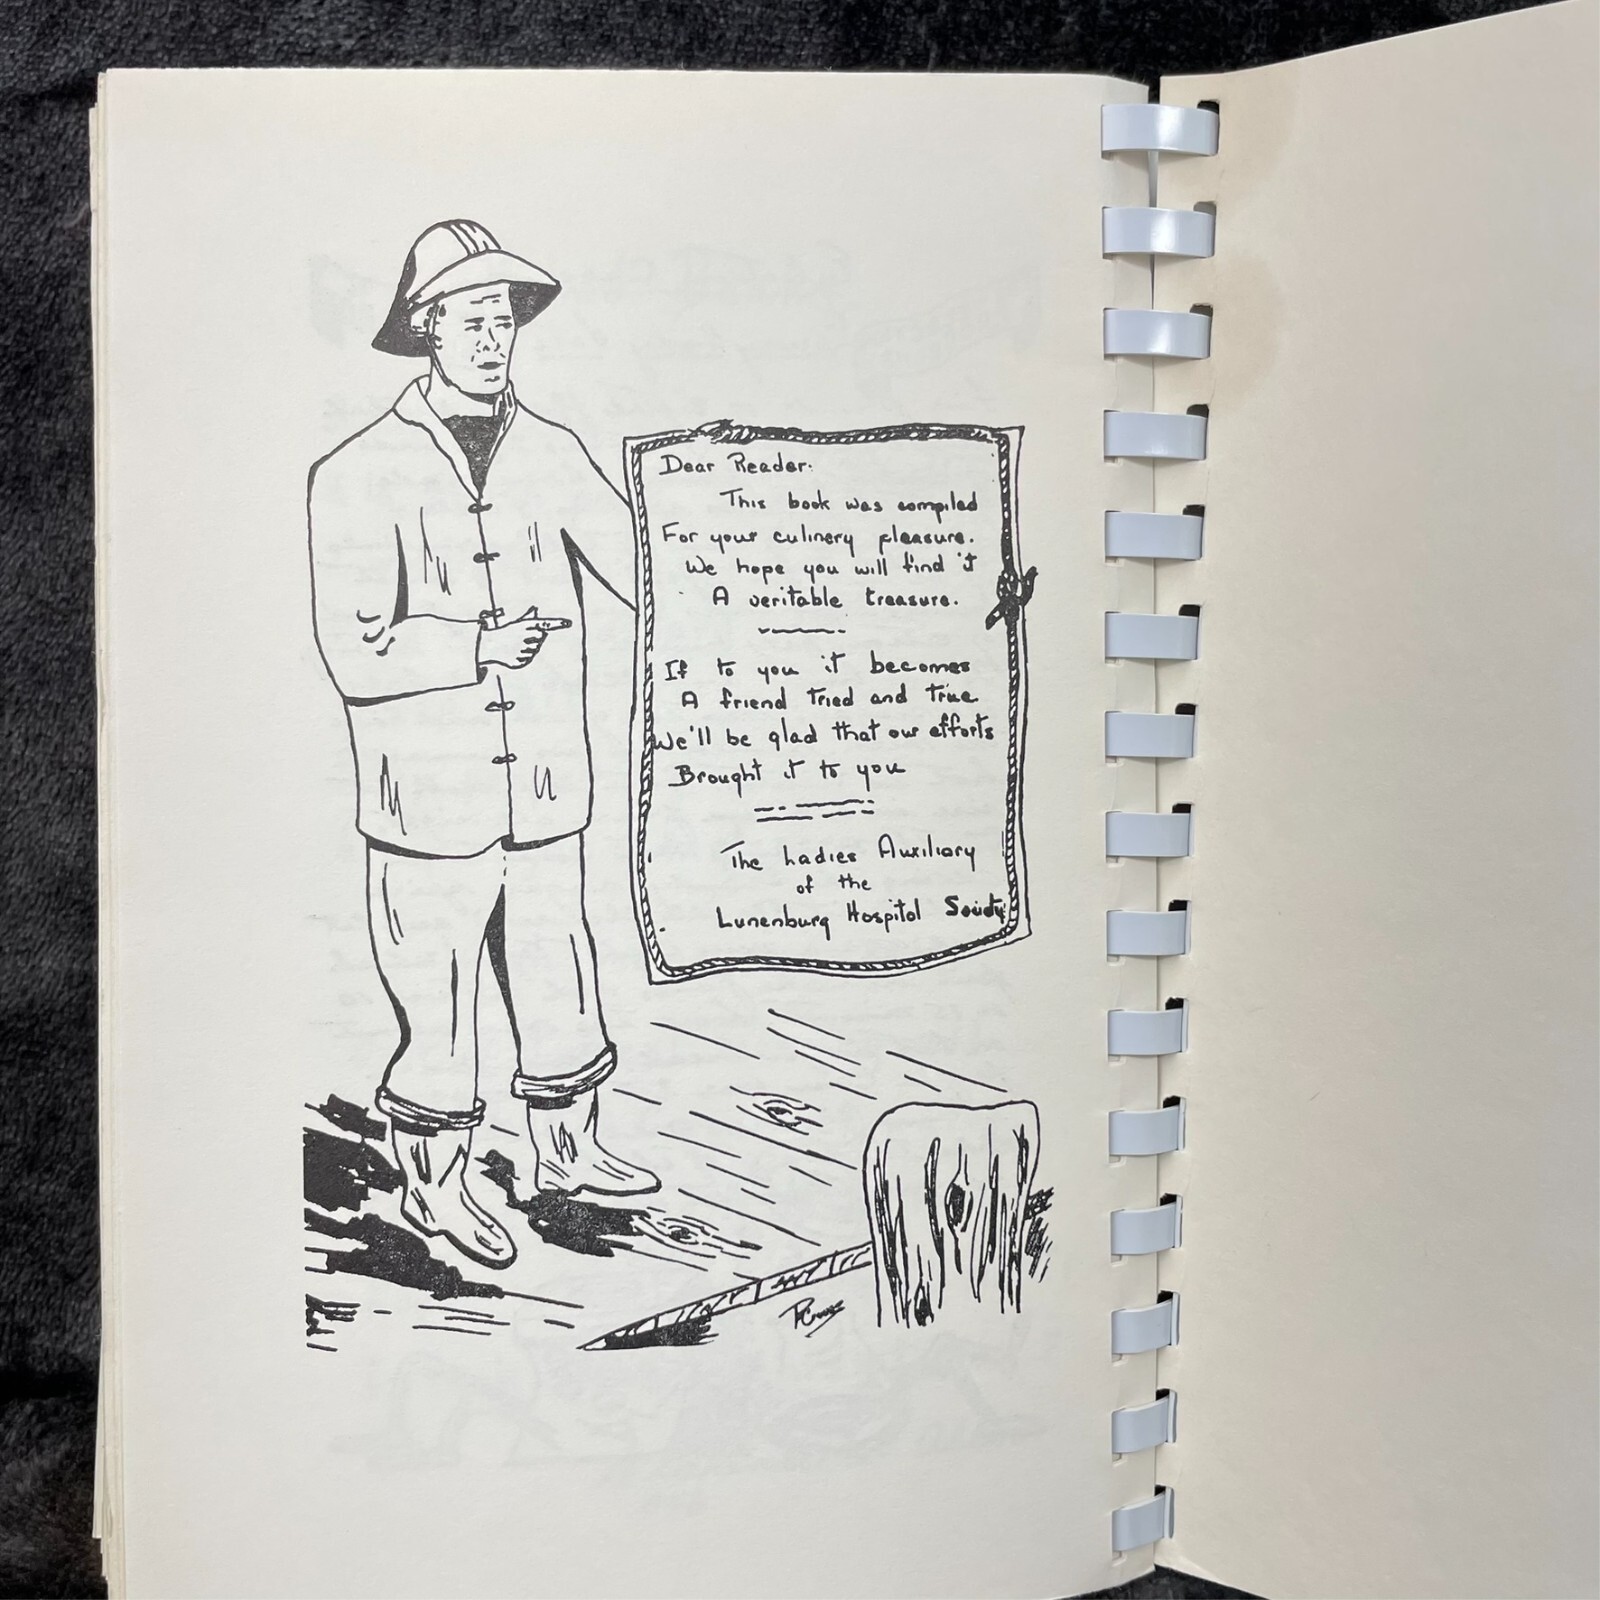 Dear Reader:
This book was compiled
For your culinery pleasure.
We hope you will find it
A veritable treasure.
If to you it becomes
A friend tried and true
We'll be glad that our efforts
Brought it to you
The Ladies Auxiliary
of the
Lunenburg Hospital Society